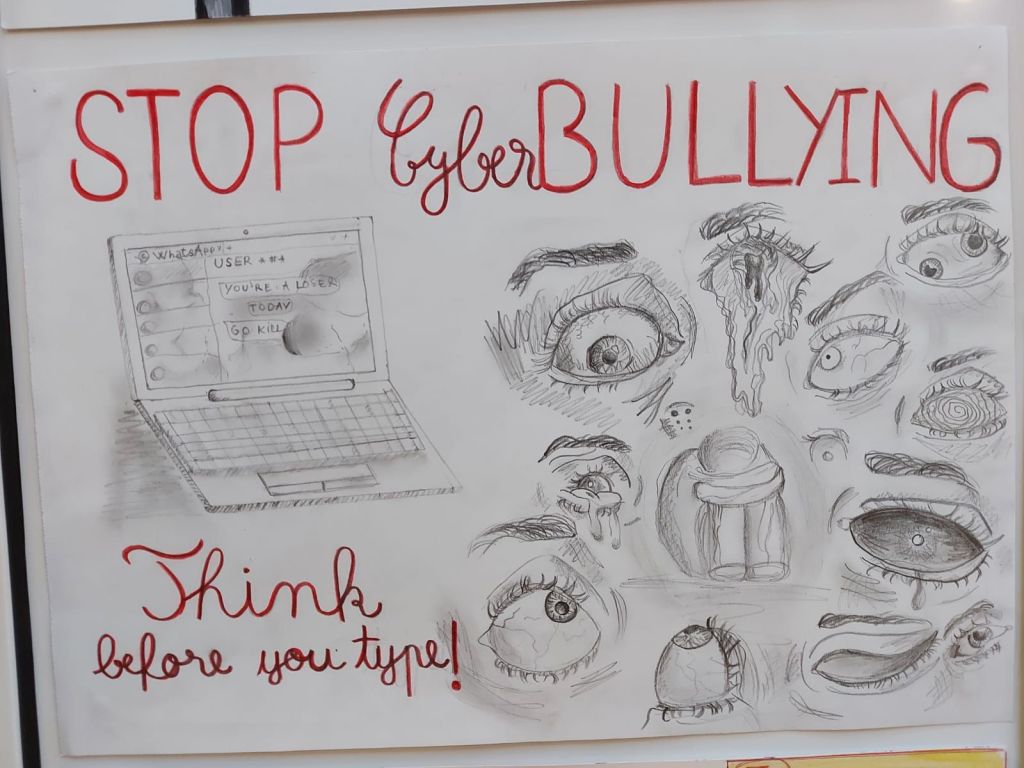 STOP Cyber BULLYING
WhatsApp
USER **#*
YOU'RE A LOSER
TODAY
GO KILL
Think
before you type!